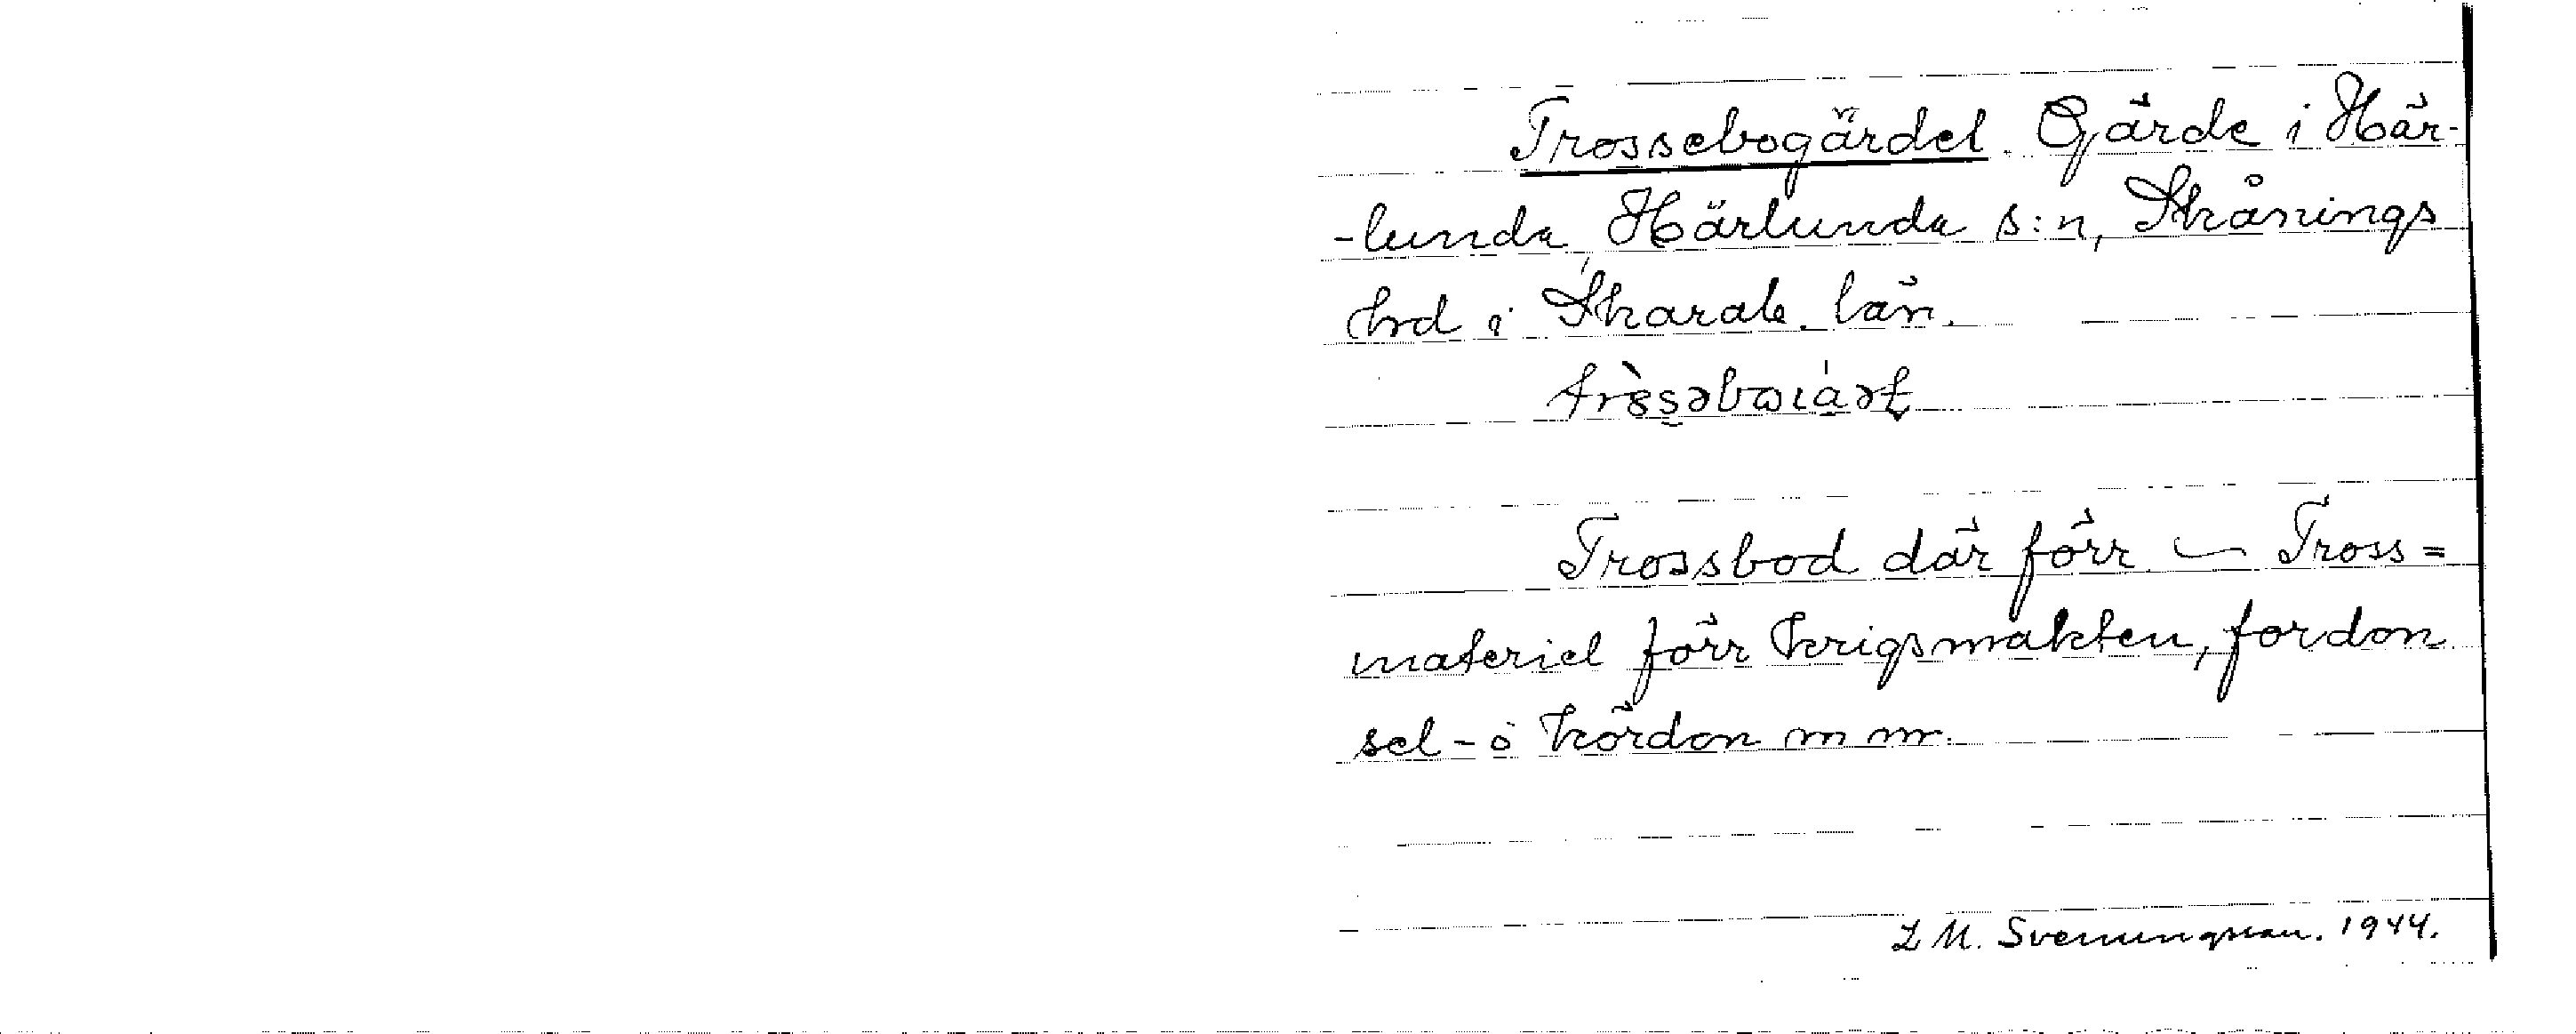 Trossebogärdet. Gärde i Här-
-lunda, Härlunda s:n, Skånings
hrd i Skarab. län.
Trossbod där förr — Tross=
materiel förr krigsmakten, fordon
sel- o kördon m m.
L M. Svenungsson. 1944.